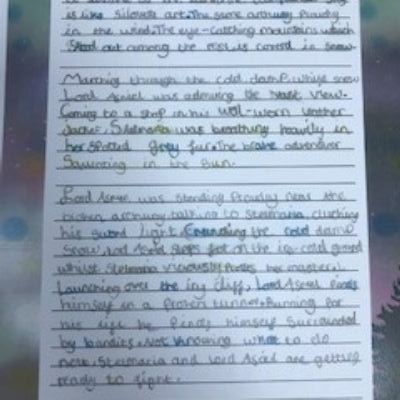 is like Silouete art. The same archway Proudly
in the wind. The eye-catching mountains which
Stood out among the rest is coverd in snow.
Marching through the cold, damp, white snow
Lord Asriel was admiring the vast view.
Coming to a stop in his well-worn leather
Jacket, Stelmaria was breathing heavily in
her spotted grey fur. The brave adventurer
Squinting in the sun.
Lord Asriel was standing Proudly near the
broken archway talking to Stelmaria, cluching
his sword tight. the cold damp
snow, Lord Asriel steps foot on the icy-cold ground
whilst Stelmaria viciously her master.
Launching over the icy cliff, Lord Asriel finds
himself in a frozen tunnel. Running for
his life he finds himself surrounded
by bandits. Not knowing what to do
next, Stelmaria and Lord Asriel are getting
ready to fight.